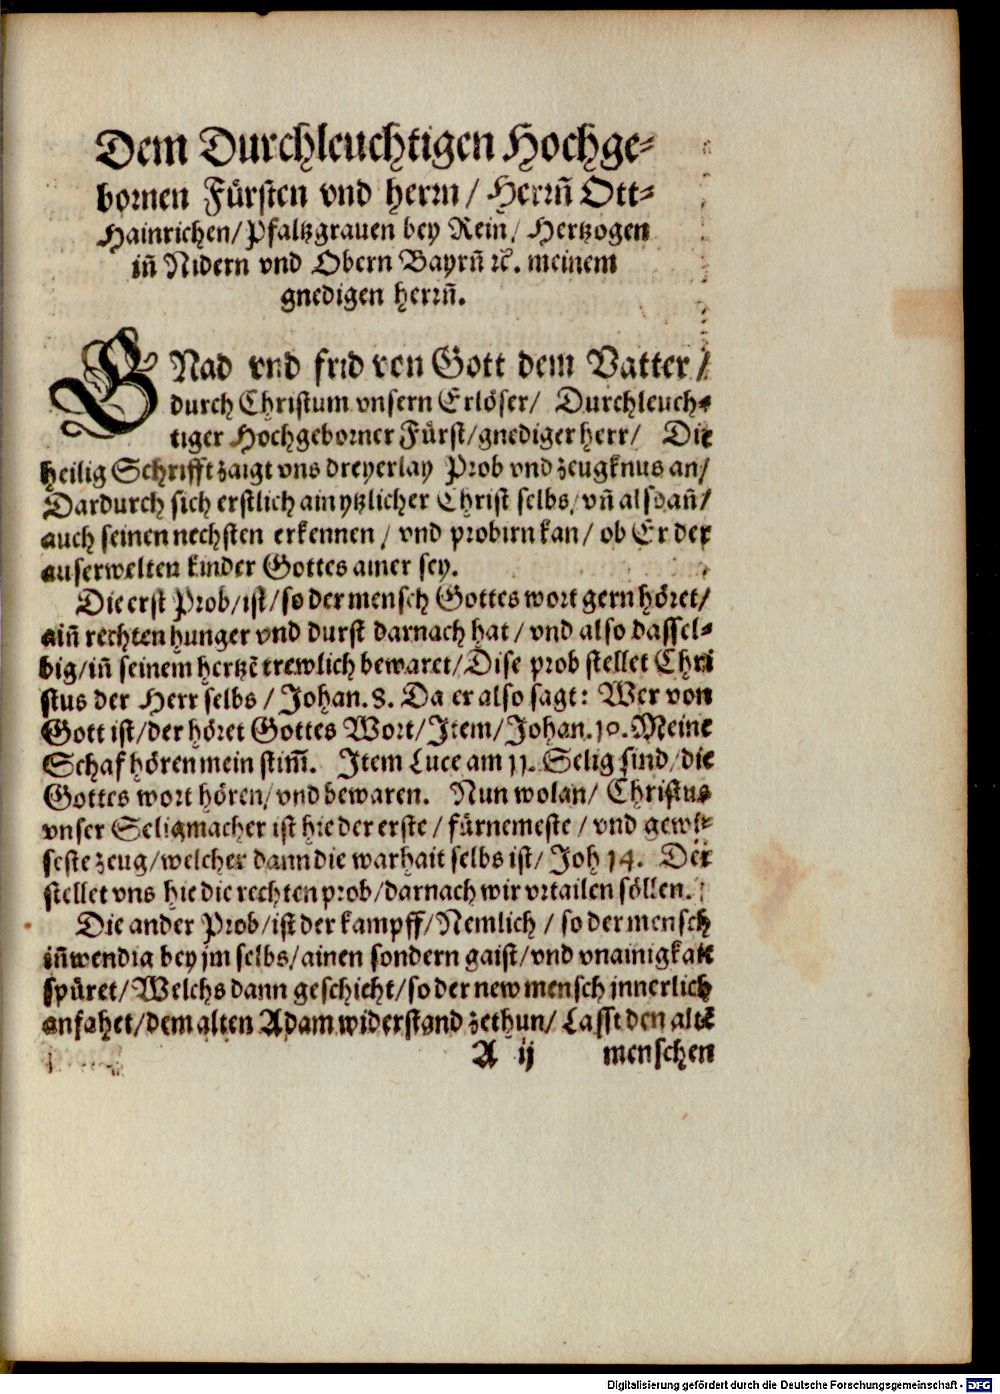 Dem Durchleuchtigen Hochge-
bornen Fürsten vnd herrn/ Herrñ Ott-
Hainrichen/ Pfaltzgrauen bey Rein/ Hertzogen
iñ Nidern vnd Obern Bayrñ ꝛc. meinem
gnedigen herrñ.
GNad vnd frid von Gott dem Vatter/
durch Christum vnsern Erlöser/ Durchleuch-
tiger Hochgeborner Fürst/ gnediger herr/ Die
heilig Schrifft zaigt vns dreyerlay Prob vnd zeugknus an/
Dardurch sich erstlich ain ytzlicher Christ selbs/ vñ alsdañ/
auch seinen nechsten erkennen/ vnd probirn kan/ ob Er der
auserwelten kinder Gottes ainer sey.
Die erst Prob/ ist/ so der mensch Gottes wort gern höret/
aiñ rechten hunger vnd durst darnach hat/ vnd also dassel-
big/ iñ seinem hertzẽ trewlich bewaret/ Dise prob stellet Chri
stus der Herr selbs/ Johan. 8. Da er also sagt: Wer von
Gott ist/ der höret Gottes Wort/ Item/ Johan. 10. Meine
Schaf hören mein stim̃. Item Luce am 11. Selig sind/ die
Gottes wort hören/ vnd bewaren. Nun wolan/ Christus
vnser Seligmacher ist hie der erste/ fürnemeste/ vnd gewi-
seste zeug/ welcher dann die warhait selbs ist/ Joh 14. Der
stellet vns hie die rechten prob/ darnach wir vrtailen söllen.
Die ander Prob/ ist der kampff/ Nemlich/ so der mensch
iñwendig bey jm selbs/ ainen sondern gaist/ vnd vnainigkait
spüret/ Welchs dann geschicht/ so der new mensch innerlich
anfahet/ dem alten Adam widerstand zethun/ Lasst den altẽ
A ij menschen
Digitalisierung gefördert durch die Deutsche Forschungsgemeinschaft - DFG